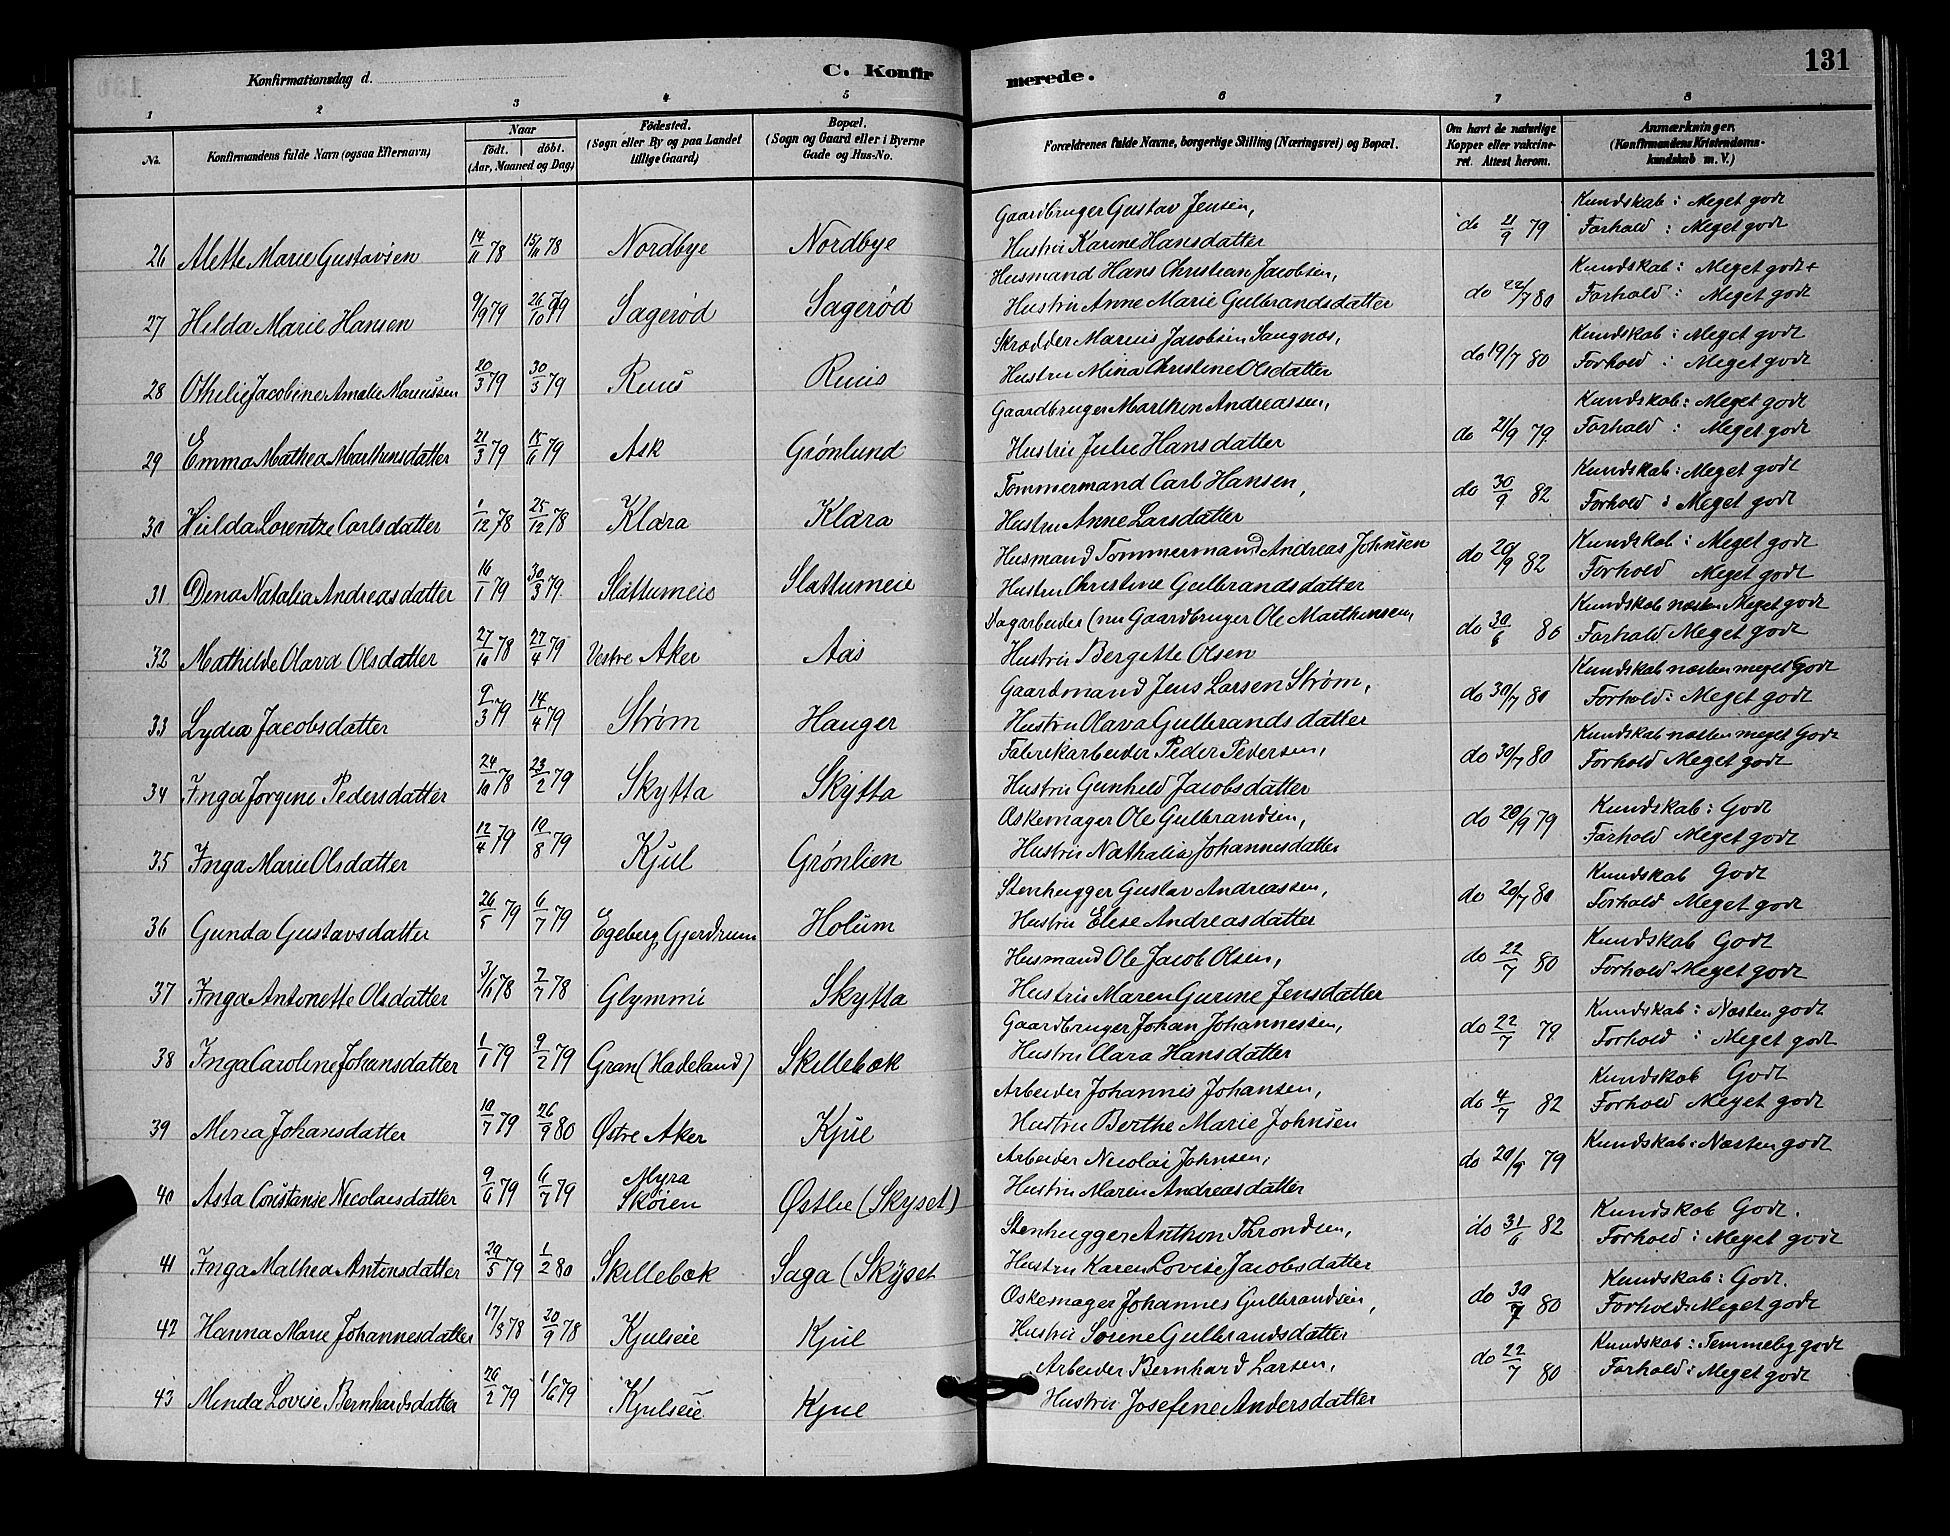 Konfirmationsdag d. C. Konfirmerede. 131
1 2 3 4 5 6 7 8
No. Konfirmandens fulde Navn (ogsaa Efternavn) Naar født. døbt. (Aar, Maaned og Dag) Fødested. (Sogn eller By og paa Landet tillige Gaard) Bopæl. (Sogn og Gaard eller i Byerne Gade og Hus-No. Forældrenes fulde Navne, borgerlige Stilling (Næringsvei) og Bopæl. Om havt de naturlige Kopper eller vakcineret. Attest herom. Anmærkninger. (Konfirmandens Kristendomskundskab m. V.)
Gaardbruger Gustav Jensen, Kundskab: Meget godt
26 Alette Marie Gustavsen 14/11 78 15/11 78 Nordbye Nordbye Hustru Karine Hansdatter do 21/9 79 Forhold: Meget godt
Husmand Hans Christian Jacobsen, Kundskab: Meget godt
27 Hilda Marie Hansen 9/9 79 26/10 79 Sagerød Sagerød Hustru Anne Marie Gulbrandsdatter do 22/7 80 Forhold: Meget godt
Skrædder Marius Jacobsen Kundskab: Meget godt
28 Othilie Jacobine Amalie Mariussen 20/3 79 30/3 79 Ruus Ruus Hustru Mina Christine Olsdatter do 19/7 80 Forhold: Meget godt
Gaardbruger Marthin Andreassen, Kundskab: Meget godt
29 Emma Mathea Marthinsdatter 21/3 79 15/6 79 Ask Grønlund Hustru Julie Hansdatter do 21/9 79 Forhold: Meget godt
Tommermand Carl Hansen, Kundskab: Meget godt
30 Hulda Lorentze Carlsdatter 1/12 78 25/12 78 Klara Klara Hustru Anne Larsdatter do 30/9 82 Forhold: Meget godt
Husmand Tommermand Andreas Johnsen Kundskab: Meget godt
31 Dina Natalia Andreasdatter 16/1 79 30/3 79 Slattumeie Slattumeie Hustru Christine Gulbrandsdatter do 20/9 82 Forhold Meget godt
Dagarbeider (nu Gaardbruger Ole Marthinsen, Kundskab næsten Meget godt
32 Mathilde Olava Olsdatter 27/10 78 27/4 79 Vestre Aker Aas Hustru Bergitte Olsen do 30/6 86 Forhold Meget godt
Gaardmand Jens Larsen Strøm, Kundskab næsten meget Godt
33 Lydia Jacobsdatter 9/3 79 14/4 79 Strøm Hauger Hustru Olava Gulbrandsdatter do 30/7 80 Forhold: Meget godt
Fabrikarbeider Peder Pedersen, Kundskab næsten meget Godt
34 Inga Jørgine Pedersdatter 24/10 78 23/2 79 Skytta Skytta Hustru Gunhild Jacobsdatter do 30/7 80 Forhold Meget godt
Oskemager Ole Gulbrandsen, Kundskab: Godt
35 Inga Marie Olsdatter 12/4 79 10/8 79 Kjul Grønlien Hustru Nathalia Johannesdatter do 20/9 79 Forhold Meget godt
Stenhugger Gustav Andreassen, Kundskab Godt
36 Gunda Gustavsdatter 26/5 79 6/7 79 Egeberg, Gjerdrum Holum Hustru Elise Andreasdatter do 20/7 80 Forhold Meget godt
Husmand Ole Jacob Olsen, Kundskab Godt
37 Inga Antonette Olsdatter 3/6 78 7/7 78 Glymmi Skytta Hustru Maren Gurine Jensdatter do 22/7 80 Forhold Meget godt
Gaardbruger Johan Johannessen, Kundskab: Næsten godt
38 Inga Caroline Johansdatter 1/1 79 9/2 79 Gran (Hadeland) Skillebæk Hustru Clara Hansdatter do 22/7 79 Forhold: Meget godt
Arbeider Johannes Johansen, Kundskab Godt
39 Mina Johansdatter 10/7 79 26/9 80 Østre Aker Kjul Hustru Berthe Marie Johnsen do 4/7 82 Forhold Meget godt
Arbeider Nicolai Johnsen, Kundskab: Næsten godt
40 Asta Constanse Nicolaisdatter 9/6 79 6/7 79 Myra Skøien Østlie (Skyset) Hustru Maren Andreasdatter do 20/9 79
Stenhugger Anthon Throndsen, Kundskab Godt.
41 Inga Mathea Antonsdatter 29/5 79 1/2 80 Skillebæk Saga (Skyset Hustru Karen Lovise Jacobsdatter do 31/6 82 Forhold: Meget godt
Oskemager Johannes Gulbrandsen, Kundskab: Godt.
42 Hanna Marie Johannesdatter 17/3 78 20/9 78 Kjulseie Kjul Hustru Sørine Gulbrandsdatter do 30/7 80 Forhold: Meget godt
Arbeider Bernhard Larsen, Kundskab: Temmelig godt
43 Minda Lovise Bernhardsdatter 26/2 79 1/6 79 Kjulseie Kjul Hustru Josefine Andersdatter do 22/7 80 Forhold: Meget godt